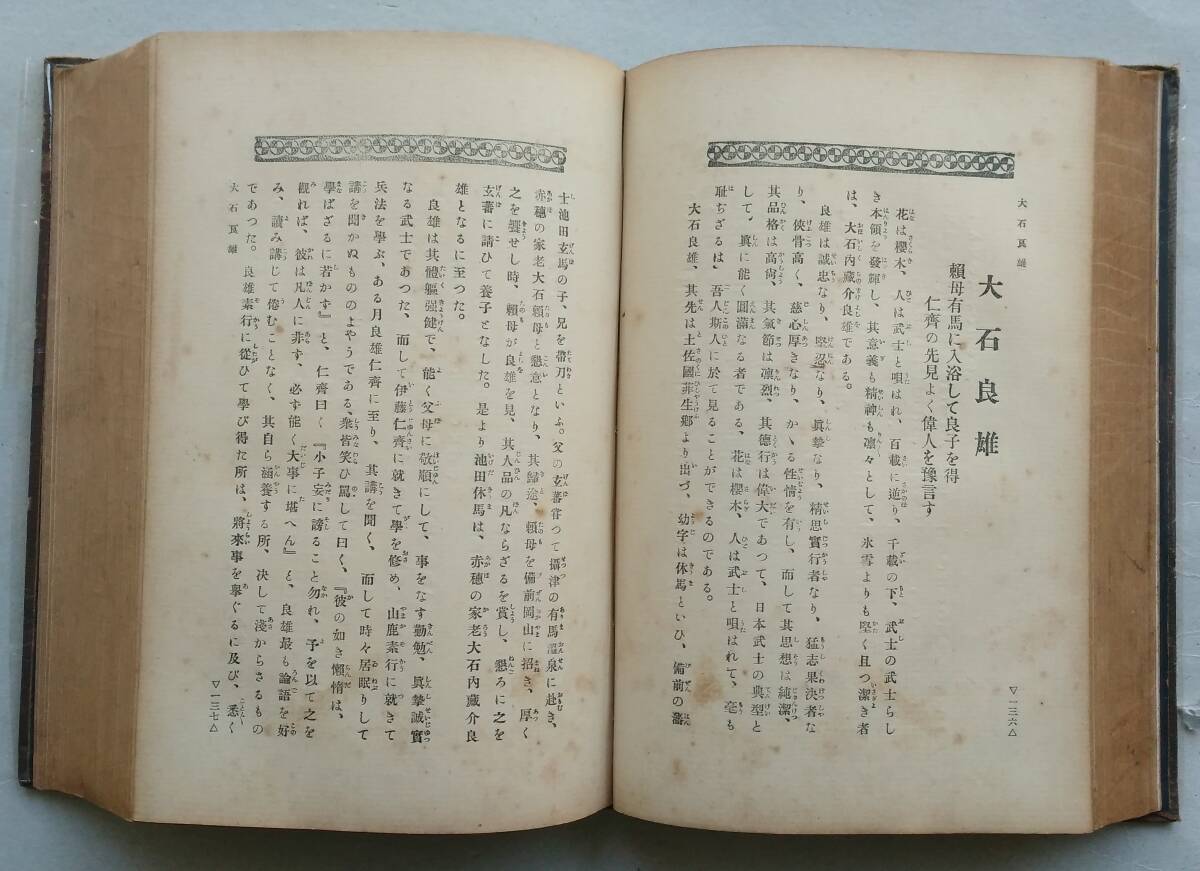 大石良雄
大石良雄
頼母有馬に入浴して良子を得
仁齊の先見よく偉人を豫言す
花は櫻木、人は武士と唄はれ、百載に遡り、千載の下、武士の武士らし
き本領を發輝し、其意義も精神も凛々として、氷雪よりも堅く且つ潔き者
は、大石内藏介良雄である。
良雄は誠忠なり、堅忍なり、眞摯なり、精思實行者なり、猛志果決者な
り、俠骨高く、慈心厚きなり、かゝる性情を有し、而して其思想は純潔、
其品格は高尚、其氣節は凛烈、其德行は偉大であつて、日本武士の典型と
して、眞に能く圓滿なる者である、花は櫻木、人は武士と唄はれて、毫も
耻ぢざるは、吾人斯人に於て見ることができるのである。
大石良雄、其先は土佐國菲生鄕より出づ、幼字は休馬といひ、備前の藩
▽一三六△
士池田玄馬の子、兄を帶刀といふ。父の玄蕃甞つて攝津の有馬温泉に赴き、
赤穗の家老大石頼母と懇意となり、其歸途、頼母を備前岡山に招き、厚く
之を饗せし時、頼母が良雄を見、其人品の凡ならざるを賞し、懇ろに之を
玄蕃に請ひて養子となした。是より池田休馬は、赤穗の家老大石内藏介良
雄となるに至つた。
良雄は其體軀强健で、能く父母に敬順にして、事をなす勤勉、眞摯誠實
なる武士であつた、而して伊藤仁齊に就きて學を修め、山鹿素行に就きて
兵法を學ぶ、ある月良雄仁齊に至り、其講を聞く、而して時々居眠りして
講を聞かぬもののよやうである、衆皆笑ひ罵して曰く、『彼の如き懶惰は、
學ばざるに若かず』と、仁齊曰く『小子妄に謗ること勿れ、予を以て之を
觀れば、彼は凡人に非ず、必ず能く大事に堪へん』と、良雄最も論語を好
み、讀み講じて倦むことなく、其自ら涵養する所、決して淺からさるもの
であつた。良雄素行に從ひて學び得た所は、將來事を擧ぐるに及び、悉く
大石良雄
▽一三七△